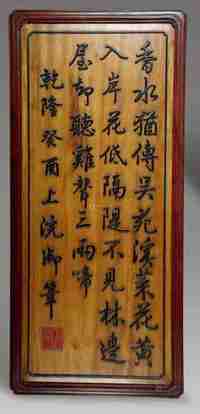 香水猶傳吳苑濱菜花黃
入岸花低隔隄不見林邊
屋却聽雞聲三兩啼
乾隆癸酉上浣御筆